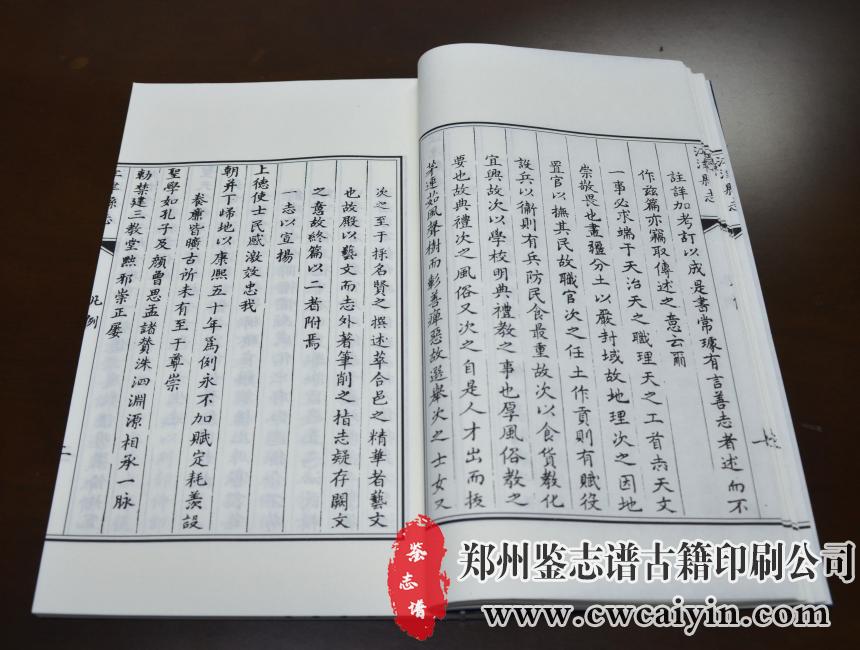 註詳加考訂以成是書常璩有言善志者述而不
作茲篇亦竊取傳述之意云爾
一事必求端于天治天之職理天之工首亦天文
崇敬畏也畫疆分土以嚴封域故地理次之因地
置官以撫其民故職官次之任土作貢則有賦役
設兵以衞則有兵防民食最重故次以食貨教化
宜興故次以學校明典禮教之事也厚風俗教之
要也故典禮次之風俗又次之自是人才出而拔
茅連茹風聲樹而彰善癉惡故選舉次之士女又
次之至于採名賢之撰述萃合邑之精華者藝文
也故殿以藝文而志外著筆削之指志疑存闕文
之意故終篇以二者附焉
一志以宣揚
上德使士民感激效忠我
朝并丁歸地以康熙五十年爲例永不加賦定耗羨設
養廉皆曠古所未有至于尊崇
聖學如孔子及顏曾思孟諸贊洙泗淵源相承一脉
勅禁建三教堂黜邪崇正屢
凡例
縣志
鉴志谱
郑州鉴志谱古籍印刷公司
www.cwcaiyin.com